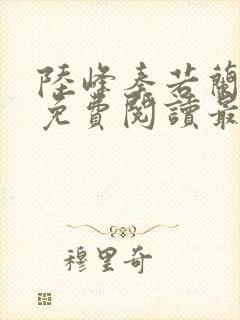 陸峰秦若蘭
免費閱讀最
穆里奇